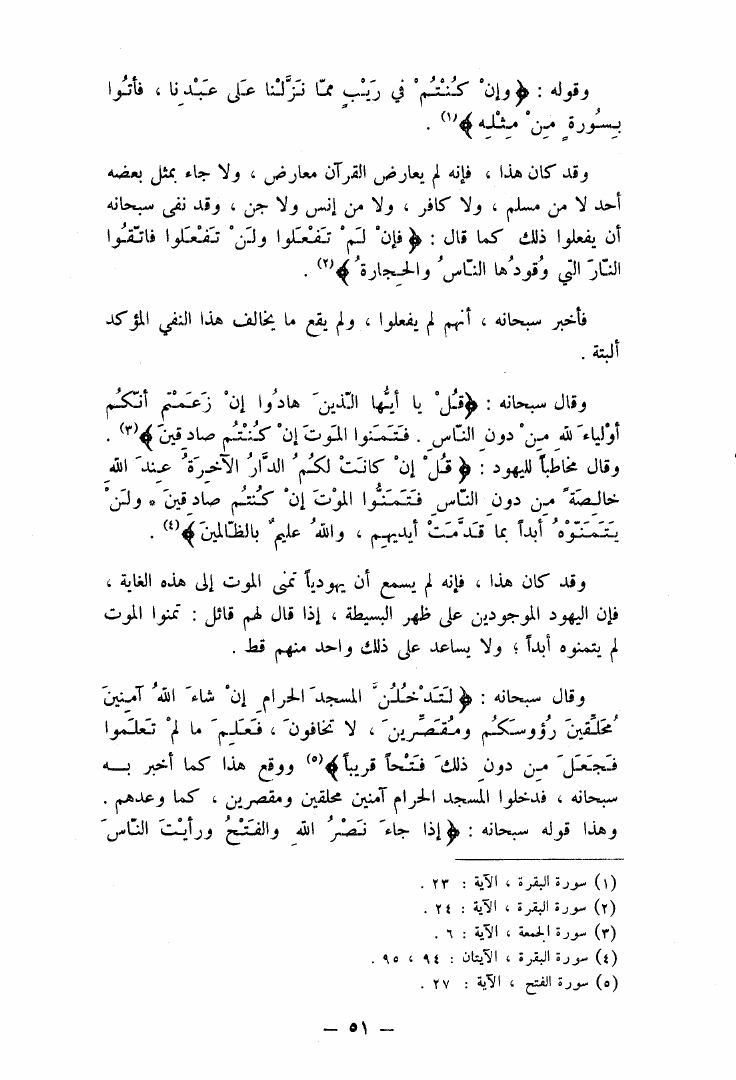 وقوله : ﴿ وإنْ كُنْتُمْ في رَيْبٍ ممّا نَزَّلْنا عَلى عَبْدِنا ، فأتُوا
بِسُورةٍ مِنْ مِثْلِه ﴾(١) .
وقد كان هذا ، فإنه لم يعارض القرآن معارض ، ولا جاء بمثل بعضه
أحد لا من مسلم ، ولا كافر ، ولا من إنس ولا جن ، وقد نفى سبحانه
أن يفعلوا ذلك كما قال : ﴿ فإنْ لَمْ تَفْعَلوا ولَنْ تَفْعَلوا فاتّقُوا
النّارَ التي وُقودُها النّاسُ والحِجارةُ ﴾(٢) .
فأخبر سبحانه ، أنهم لم يفعلوا ، ولم يقع ما يخالف هذا النفي المؤكد
ألبتة .
وقال سبحانه : ﴿قُلْ يا أيُّها الّذينَ هادُوا إنْ زَعَمْتُم أنّكُم
أوْلياءَ للهِ مِنْ دونِ النّاسِ . فَتَمَنوا المَوتَ إنْ كُنْتُم صادقِينَ ﴾(٣) .
وقال مخاطباً لليهود : ﴿ قُلْ إنْ كانَتْ لكُمُ الدَّارُ الآخِرَةُ عِندَ اللهِ
خالِصَةً مِن دونِ النّاسِ فَتَمَنُّوا المَوْتَ إنْ كُنتُم صادِقينَ * ولَنْ
يَتَمَنّوْهُ أبداً بما قَدَّمَتْ أيديهِم ، واللهُ عليمٌ بالظّالمينَ ﴾(٤) .
وقد كان هذا ، فإنه لم يسمع أن يهودياً تمنى الموت إلى هذه الغاية ،
فإن اليهود الموجودين على ظهر البسيطة ، إذا قال لهم قائل : تمنوا الموت
لم يتمنوه أبداً ؛ ولا يساعد على ذلك واحد منهم قط .
وقال سبحانه : ﴿ لَتَدْخُلُنَّ المسجدَ الحرامِ إنْ شاءَ اللهُ آمِنِينَ
مُحَلِّقينَ رُؤوسَكُم ومُقَصِّرينَ ، لا تخافونَ ، فَعَلِمَ ما لَمْ تَعلَموا
فَجَعَلَ مِن دونِ ذلكَ فَتْحاً قريباً ﴾(٥) ووقع هذا كما أخبر بـه
سبحانه ، فدخلوا المسجد الحرام آمنين محلقين ومقصرين ، كما وعدهم .
وهذا قوله سبحانه : ﴿ إذا جاءَ نَصْرُ اللهِ والفَتْحُ ورأيْتَ النّاسَ
(١) سورة البقرة ، الآية : ٢٣ .
(٢) سورة البقرة ، الآية : ٢٤ .
(٣) سورة الجمعة ، الآية : ٦ .
(٤) سورة البقرة ، الآيتان : ٩٤ ، ٩٥ .
(٥) سورة الفتح ، الآية : ٢٧ .
— ٥١ —